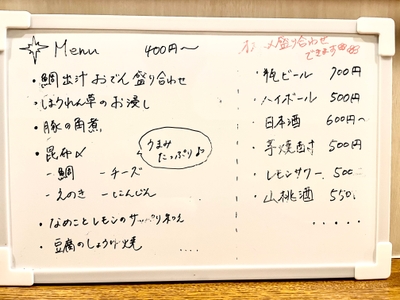 Menu 400円〜
・鯛出汁おでん盛り合わせ
・ほうれん草のお浸し
・豚の角煮
・昆布〆
うまみ
たっぷり
ー鯛 ーチーズ
ーえのき ーにんじん
・なめことレモンのサッパリ和え
・豆腐のしょうが焼
....
〆盛り合わせ
できます
・瓶ビール 700円
・ハイボール 500円
・日本酒 600円〜
・芋焼酎 500円
・レモンサワー 500
・山桃酒 550
.....